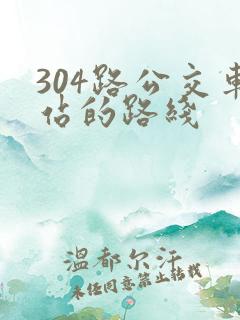 304路公交车
佔的路线
温都尔汗
未经同意禁止转载